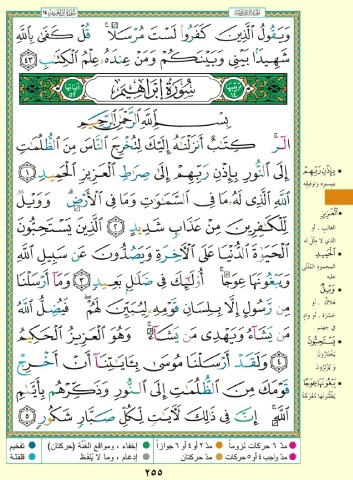 وَيَقُولُ ٱلَّذِينَ كَفَرُوا۟ لَسْتَ مُرْسَلًا ۚ قُلْ كَفَىٰ بِٱللَّهِ
شَهِيدًۢا بَيْنِى وَبَيْنَكُمْ وَمَنْ عِندَهُۥ عِلْمُ ٱلْكِتَٰبِ ٤٣
ترتيبها ١٤ سُورَةُ إِبْرَاهِيم آياتها ٥٢
بِسْمِ ٱللَّهِ ٱلرَّحْمَٰنِ ٱلرَّحِيمِ
الٓر ۚ كِتَٰبٌ أَنزَلْنَٰهُ إِلَيْكَ لِتُخْرِجَ ٱلنَّاسَ مِنَ ٱلظُّلُمَٰتِ
إِلَى ٱلنُّورِ بِإِذْنِ رَبِّهِمْ إِلَىٰ صِرَٰطِ ٱلْعَزِيزِ ٱلْحَمِيدِ ١
ٱللَّهِ ٱلَّذِى لَهُۥ مَا فِى ٱلسَّمَٰوَٰتِ وَمَا فِى ٱلْأَرْضِ ۗ وَوَيْلٌ
لِّلْكَٰفِرِينَ مِنْ عَذَابٍ شَدِيدٍ ٢ ٱلَّذِينَ يَسْتَحِبُّونَ
ٱلْحَيَوٰةَ ٱلدُّنْيَا عَلَى ٱلْءَاخِرَةِ وَيَصُدُّونَ عَن سَبِيلِ ٱللَّهِ
وَيَبْغُونَهَا عِوَجًا ۚ أُو۟لَٰٓئِكَ فِى ضَلَٰلٍۭ بَعِيدٍ ٣ وَمَآ أَرْسَلْنَا
مِن رَّسُولٍ إِلَّا بِلِسَانِ قَوْمِهِۦ لِيُبَيِّنَ لَهُمْ ۖ فَيُضِلُّ ٱللَّهُ
مَن يَشَآءُ وَيَهْدِى مَن يَشَآءُ ۚ وَهُوَ ٱلْعَزِيزُ ٱلْحَكِيمُ
٤ وَلَقَدْ أَرْسَلْنَا مُوسَىٰ بِـَٔايَٰتِنَآ أَنْ أَخْرِجْ
قَوْمَكَ مِنَ ٱلظُّلُمَٰتِ إِلَى ٱلنُّورِ وَذَكِّرْهُم بِأَيَّىٰمِ
ٱللَّهِ ۚ إِنَّ فِى ذَٰلِكَ لَءَايَٰتٍ لِّكُلِّ صَبَّارٍ شَكُورٍ ٥
بِإِذْنِ رَبِّهِمْ
بتيسيره وتوفيقه
الْعَزِيزِ
الغالب . أو
الذي لا مثل له
الْحَمِيدِ
المحمود المُثنى
عليه
وَيْلٌ
هلاكٌ . أو
حسرة . أو وادٍ
في جهنم
يَسْتَحِبُّونَ
يختارون
ويُؤثرون
يَبْغُونَهَا عِوَجًا
يطلبونها مُعْوَجَّةً
مدّ ٦ حركات لزوماً
مدّ ٢ أو ٤ أو ٦ جوازاً
إخفاء ، ومواقع الغُنَّة (حركتان)
تفخيم
مدّ واجب ٤ أو ٥ حركات
مدّ حركتان
إدغام ، وما لا يُلفَظ
قلقلة
٢٥٥